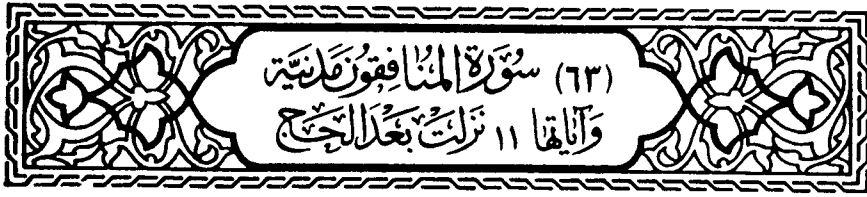 (٦٣) سُورَةُ المُنَافِقُونَ مَدَنِيَّة
وَآيَاتُهَا ١١ نَزَلَتْ بَعْدَ الحَجِّ